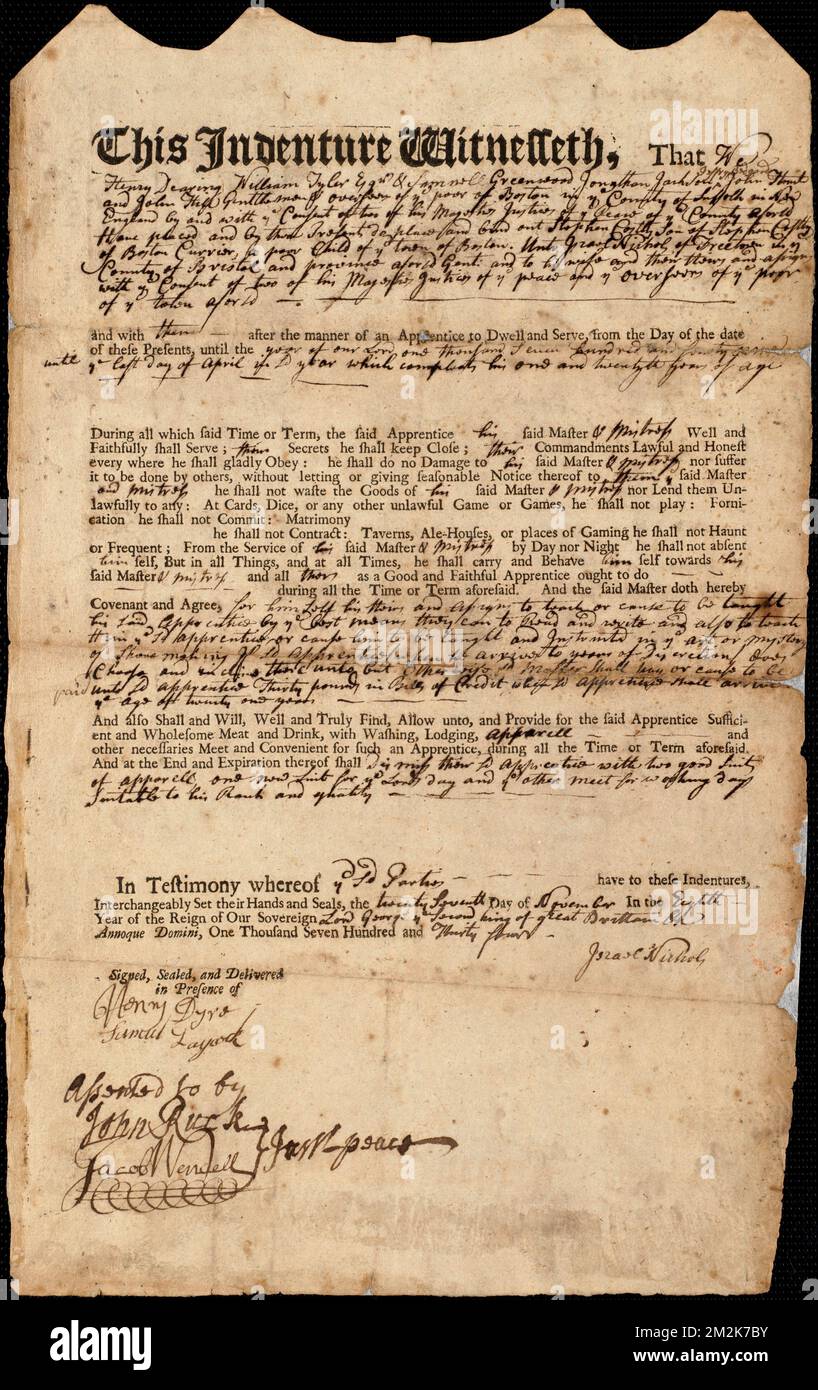 This Indenture Witnesseth, That We
Henry Dearing William Tyler Esqrs & Samuell Greenwood Jonathan Jackson John Hunt
and John Hill Gentlemen overseers of ye poor of Boston in ye County of Suffolk in New
England by and with ye Consent of two of his Majesties Justices of ye peace of ye County aforsd
Have placed and by these Present do place and bind out Stephen Son of Stephen
of Boston Currier, a poor Child of ye town of Boston. Unto Nichols of Freetown in ye
County of Bristol and province aforsd Gent: and to his wife and their Heirs and assigns
with ye Consent of two of his Majesties Justices of ye peace and ye overseers of ye poor
of ye town aforsd
and with them after the manner of an Apprentice to Dwell and Serve, from the Day of the date
of these Presents, until the year of our Lord one thousand Seven hundred and forty
until ye last day of April in sd year which compleats his one and twentyth years of age
During all which said Time or Term, the said Apprentice his said Master & Mistress Well and
Faithfully shall Serve; their Secrets he shall keep Close; their Commandments Lawful and Honest
every where he shall gladly Obey: he shall do no Damage to his said Master & Mistress nor suffer
it to be done by others, without letting or giving seasonable Notice thereof to them said Master
and Mistress he shall not waste the Goods of his said Master & Mistress nor Lend them Un-
lawfully to any: At Cards, Dice, or any other unlawful Game or Games, he shall not play: Forni-
cation he shall not Commit: Matrimony
he shall not Contract: Taverns, Ale-Houses, or places of Gaming he shall not Haunt
or Frequent; From the Service of his said Master & Mistress by Day nor Night he shall not absent
him self, But in all Things, and at all Times, he shall carry and Behave him self towards his
said Master & Mistress and all thers as a Good and Faithful Apprentice ought to do
during all the Time or Term aforesaid. And the said Master doth hereby
Covenant and Agree, for himself his Heirs and Assigns to teach or cause to be taught
his said Apprentice by ye best means they can to Read and write and also to teach
him ye sd apprentice or cause him to be taught and Instructed in ye art or mystery
of Shoue making If sd Apprentice when he arrives to years of discretion
Choose and incline there unto but other wise sd Master shall pay or cause to be
paid unto sd apprentice Thirty pounds in Bills of Credit when sd Apprentice shall arrive
ye age of twenty one years
And also Shall and Will, Well and Truly Find, Allow unto, and Provide for the said Apprentice Suffici-
ent and Wholesome Meat and Drink, with Washing, Lodging, apparell and
other necessaries Meet and Convenient for such an Apprentice, during all the Time or Term aforesaid.
And at the End and Expiration thereof shall Dismiss their sd Apprentice with two good Suits
of apparell one new Suit for ye Lords day and ye other meet for working days
Suitable to his Rank and quality
In Testimony whereof ye sd Parties have to these Indentures,
Interchangeably Set their Hands and Seals, the twenty Seventh Day of November In the Eighth
Year of the Reign of Our Sovereign Lord George ye Second king of great Brittain &c
Annoque Domini, One Thousand Seven Hundred and Thirty four
Israel Nichols
Signed, Sealed, and Delivered
in Presence of
Henry Dyre
Samuel
Assented to by
John Ruck
Jacob Wendell Just peace
alamy
Image ID: 2M2K7BY
www.alamy.com